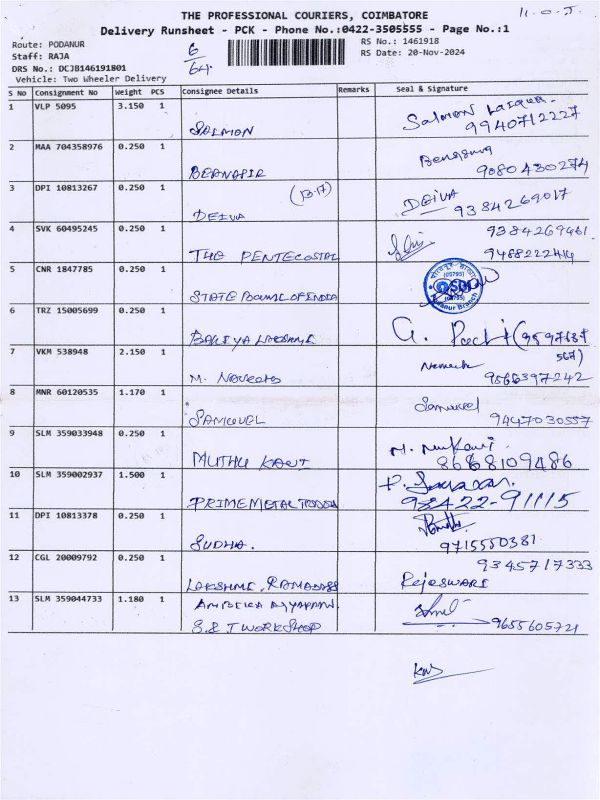 THE PROFESSIONAL COURIERS, COIMBATORE
Delivery Runsheet - PCK - Phone No.:0422-3505555 - Page No.:1
Route: PODANUR RS No.: 1461918
Staff: RAJA RS Date: 20-Nov-2024
DRS No.: DCJB146191801
6/64
Vehicle: Two Wheeler Delivery
S No Consignment No Weight PCS Consignee Details Remarks Seal & Signature
1 VLP 5095 3.150 1 SALMON Salmon 9940712227
2 MAA 704358976 0.250 1 9080430274
3 DPI 10813267 0.250 1 DEIVA (13-17) DEIVA 9384269017
4 SVK 60495245 0.250 1 THE PENTECOSTAL 9384269461 9488222414
5 CNR 1847785 0.250 1 STATE OF INDIA SBI Podanur Branch
6 TRZ 15005699 0.250 1
7 VKM 538948 2.150 1 9566397242
8 MNR 60120535 1.170 1 SAMUVEL Samuvel 9447030557
9 SLM 359033948 0.250 1 8668109486
10 SLM 359002937 1.500 1 PRIME METAL 98422-91115
11 DPI 10813378 0.250 1 SUDHA. 9715550381
12 CGL 20009792 0.250 1 9345717333 Rajeswari
13 SLM 359044733 1.180 1 S.&T WORKSHOP 9655605721